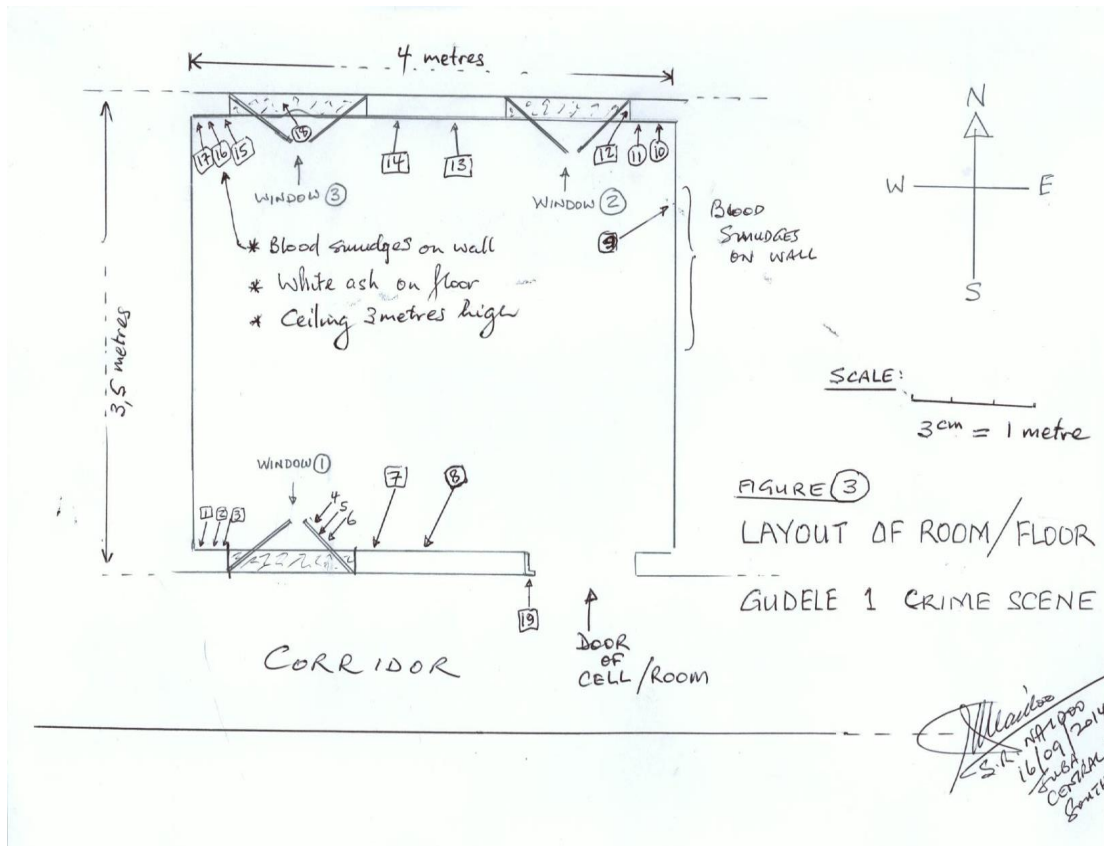 4 metres
N
W E
S
17 16 15
18
14
13
12
11
10
WINDOW 3
WINDOW 2
9
BLOOD
SMUDGES
ON WALL
* Blood smudges on wall
* White ash on floor
* Ceiling 3 metres high
3,5 metres
SCALE:
3cm = 1 metre
WINDOW 1
1 2 3
4
5
6
7
8
FIGURE 3
LAYOUT OF ROOM/FLOOR
GUDELE 1 CRIME SCENE
19
CORRIDOR
DOOR
OF
CELL/ROOM
S.R. NAIDOO
16/09/2014
JUBA
CENTRAL